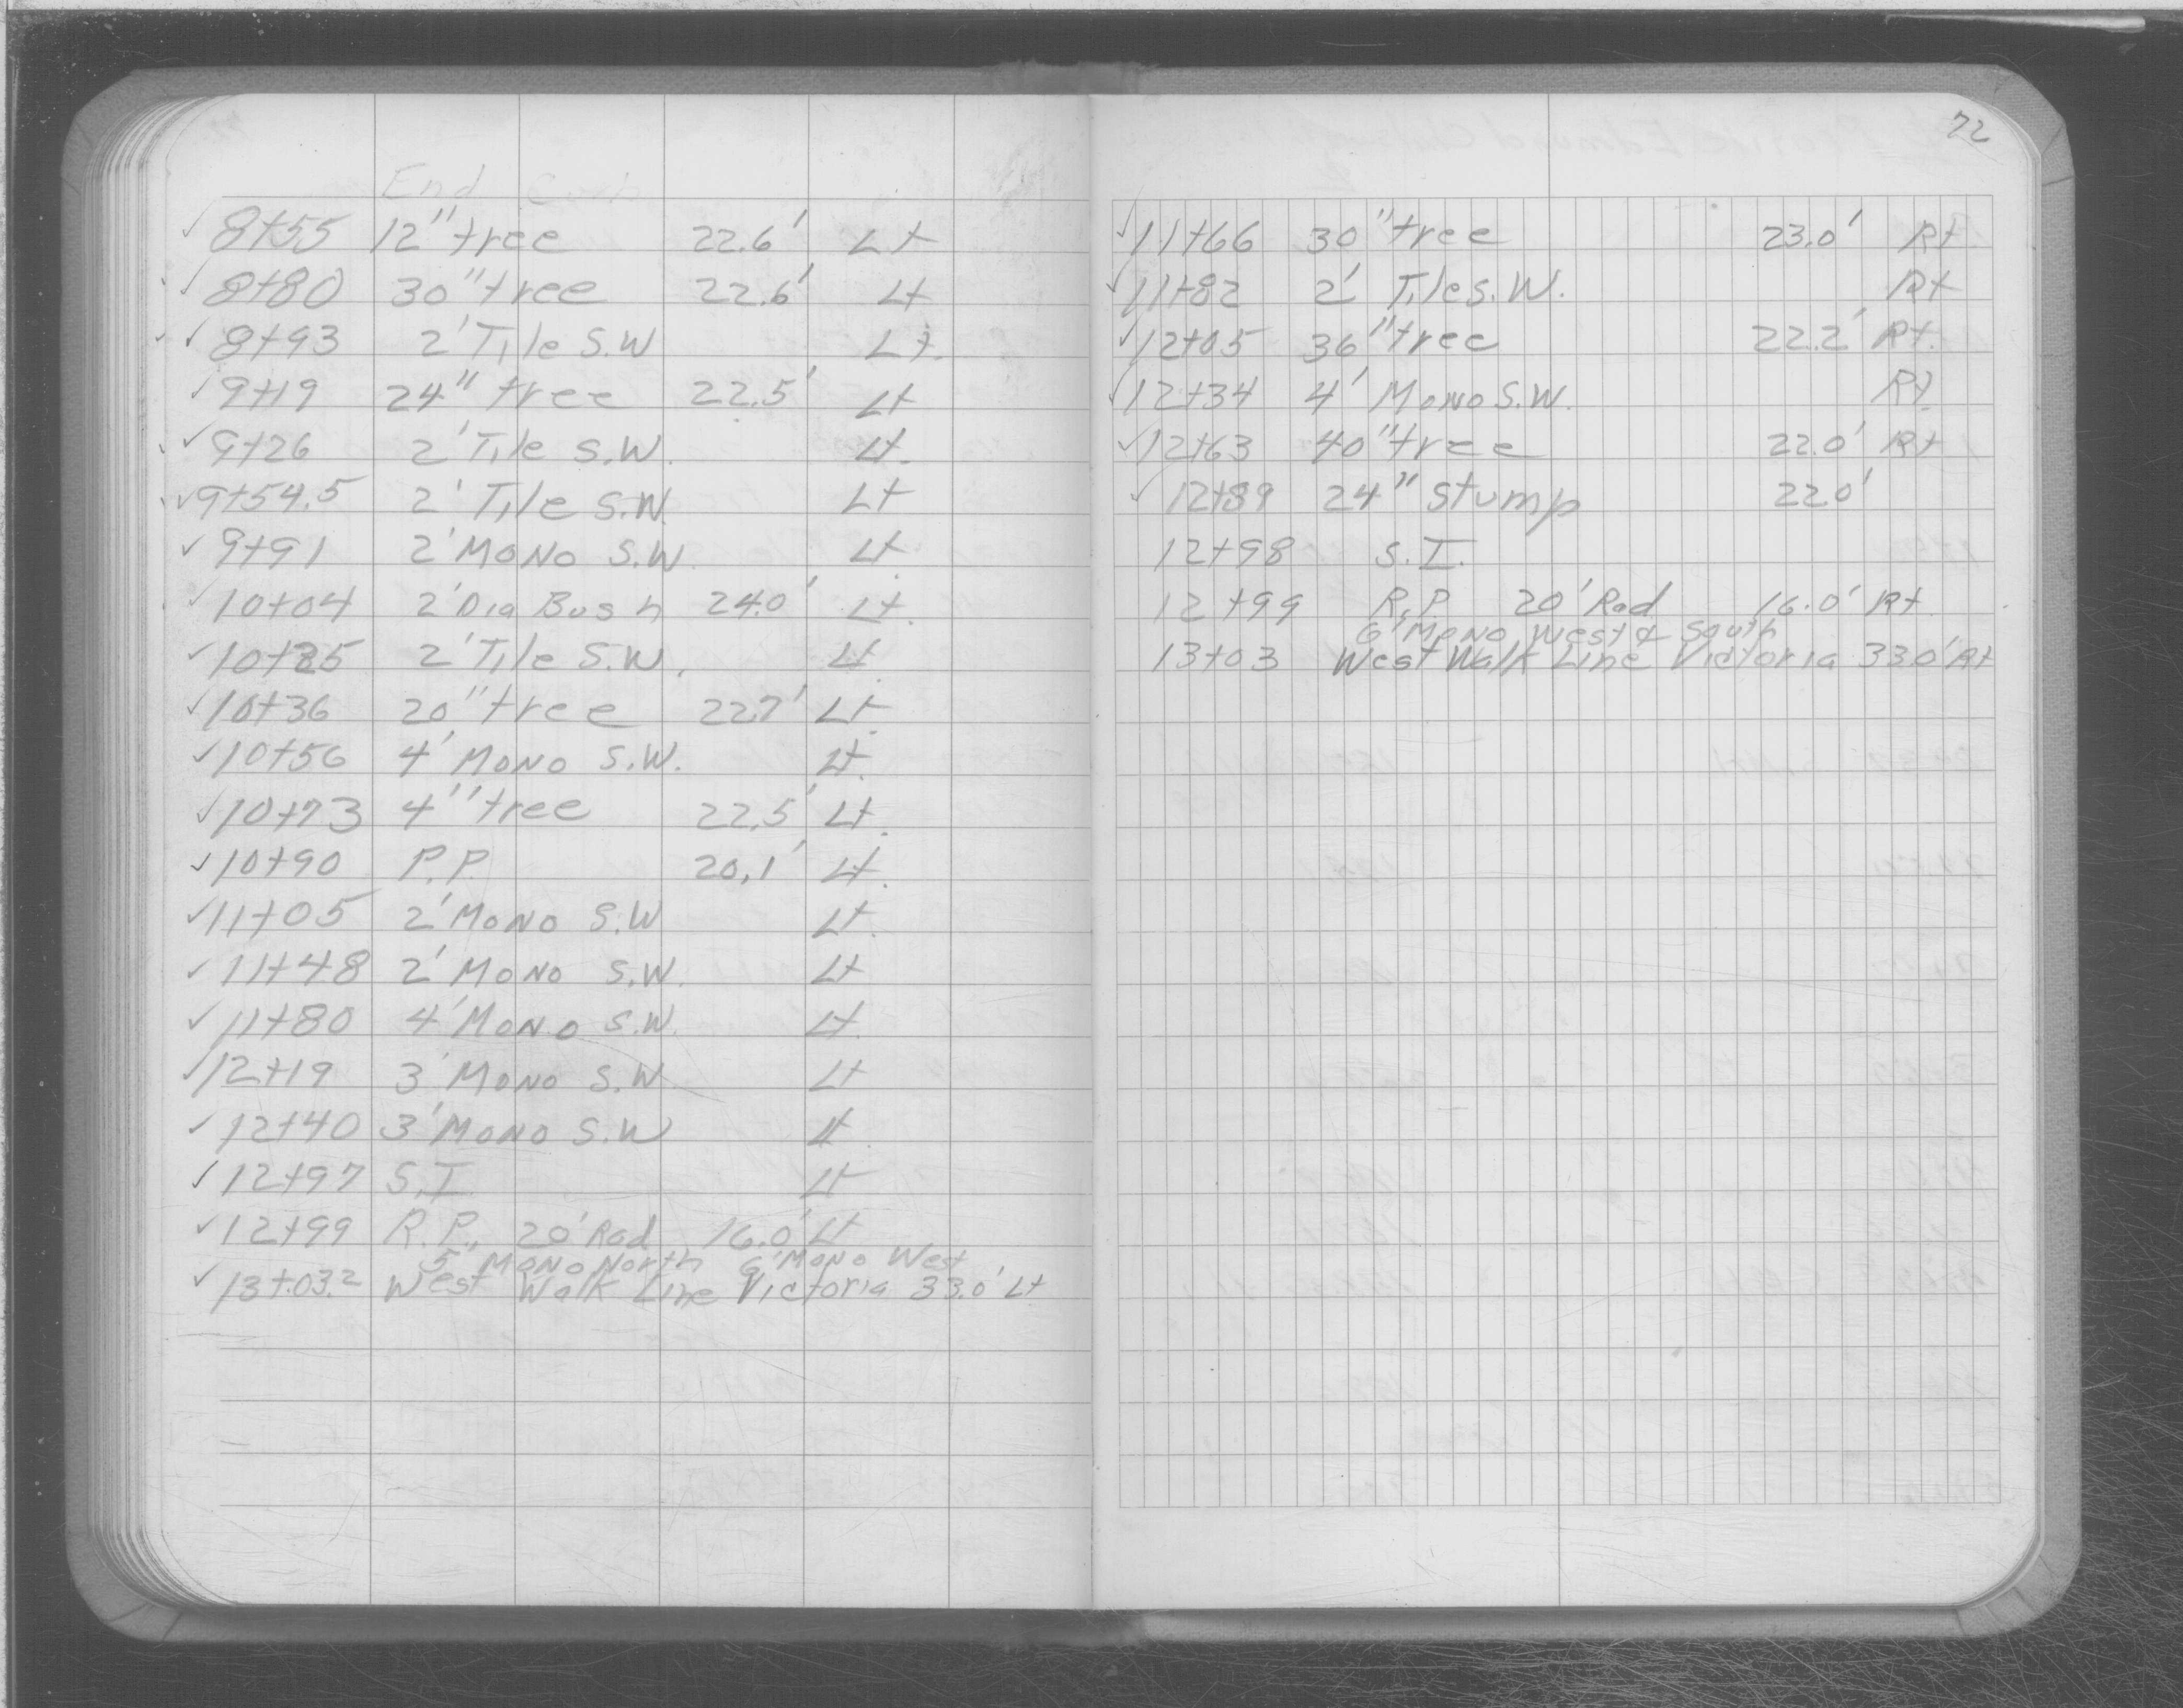 End
✓ 8+55 12" tree 22.6' Lt
✓ 8+80 30" tree 22.6' Lt
✓ 8+93 2' Tile S.W Lt.
✓ 9+19 24" tree 22.5' Lt
✓ 9+26 2' Tile S.W. Lt.
✓ 9+54.5 2' Tile S.W. Lt
✓ 9+91 2' MONO S.W. Lt.
✓ 10+04 2' Dia Bush 24.0' Lt.
✓ 10+25 2' Tile S.W. Lt.
✓ 10+36 20" tree 22.7' Lt.
✓ 10+56 4' MONO S.W. Lt.
✓ 10+73 4" tree 22.5' Lt.
✓ 10+90 P.P. 20.1' Lt.
✓ 11+05 2' MONO S.W Lt.
✓ 11+48 2' MONO S.W. Lt
✓ 11+80 4' MONO S.W. Lt.
✓ 12+19 3' MONO S.W. Lt
✓ 12+40 3' MONO S.W Lt.
✓ 12+97 S.I. Lt
✓ 12+99 R.P. 20' Rad 16.0' Lt
5' MONO North 6' MONO West
✓ 13+03.2 West Walk Line Victoria 33.0' Lt
72
✓ 11+66 30" tree 23.0' Rt
✓ 11+82 2' Tile S.W. Rt
✓ 12+05 36" tree 22.2' Rt.
✓ 12+34 4' MONO S.W. Rt.
✓ 12+63 40" tree 22.0' Rt
✓ 12+89 24" stump 22.0'
12+98 S.I.
12+99 R.P 20' Rad 16.0' Rt.
6' MONO West & South
13+03 West Walk Line Victoria 33.0' Rt